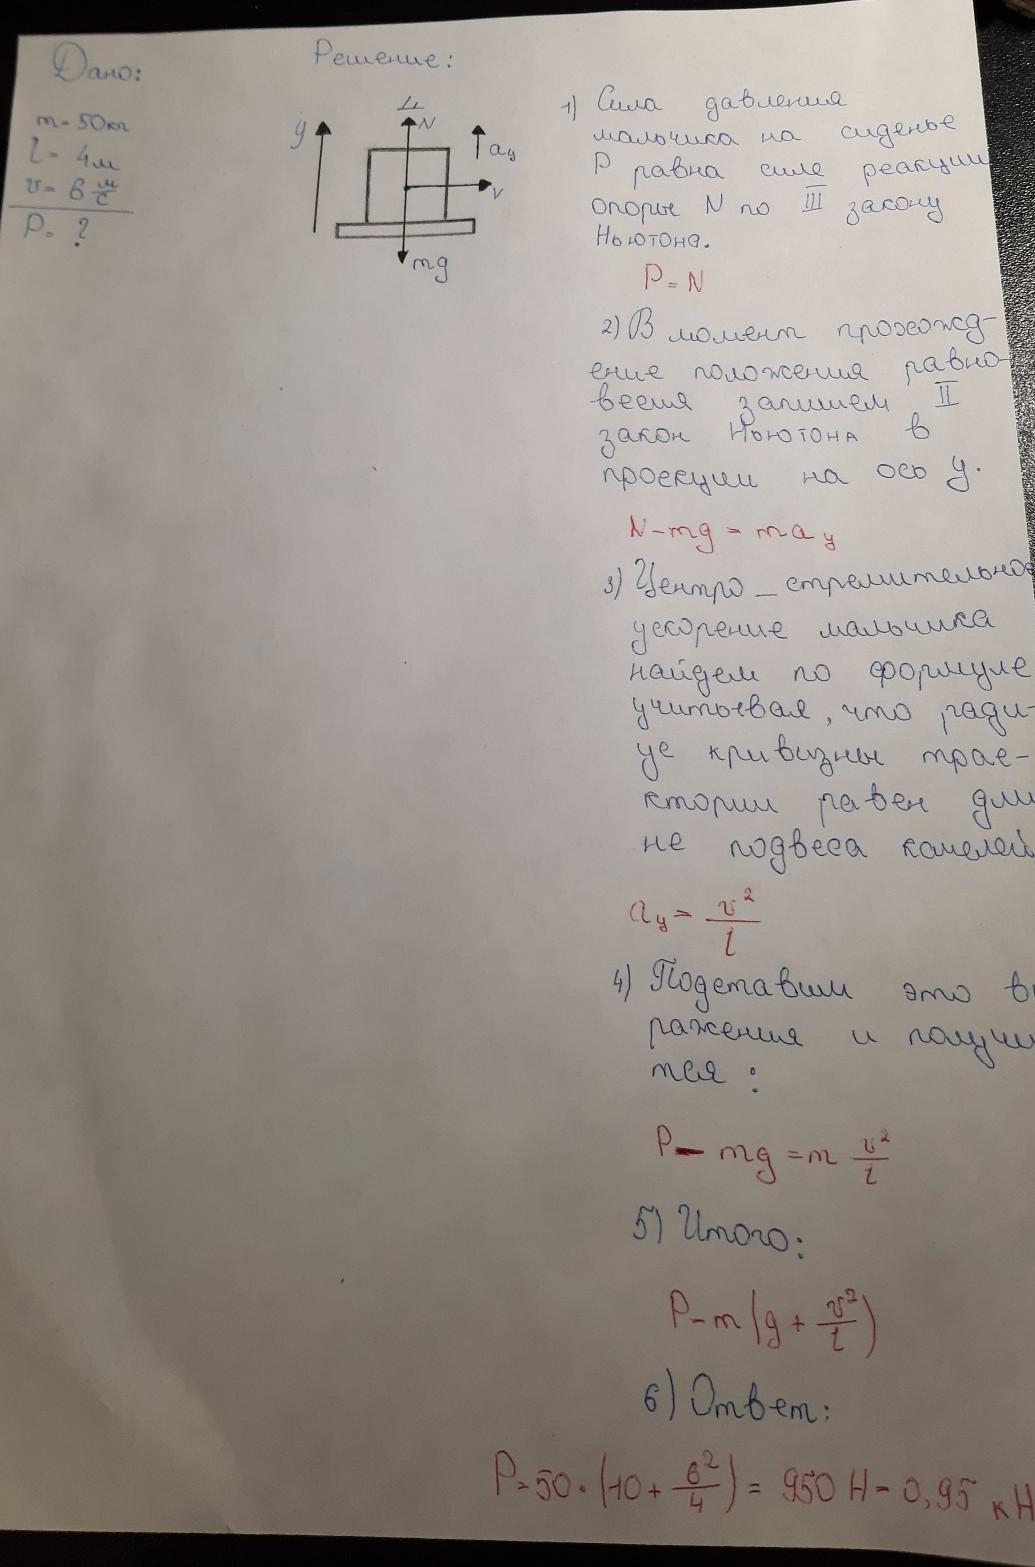 Дано:
m=50кг
l= 4м
v= 6 м/с
P= ?
Решение:
y
N
ay
v
mg
1) Сила давления
мальчика на сиденье
P равна силе реакции
опоры N по III закону
Ньютона.
P=N
2) В момент прохожд-
ение положения равно-
весия запишем II
закон Ньютона в
проекции на ось y.
N-mg = may
3) Центро_стремительное
ускорение мальчика
найдем по формуле
учитывая, что ради-
ус кривизны трае-
ктории равен дли
не подвеса качелей
ay= v²/l
4) Подставим это вы
ражения и получи
тся :
P- mg =m v²/l
5) Итого:
P=m(g + v²/l)
6) Ответ:
P=50·(10+ 6²/4)= 950 Н= 0,95 кН